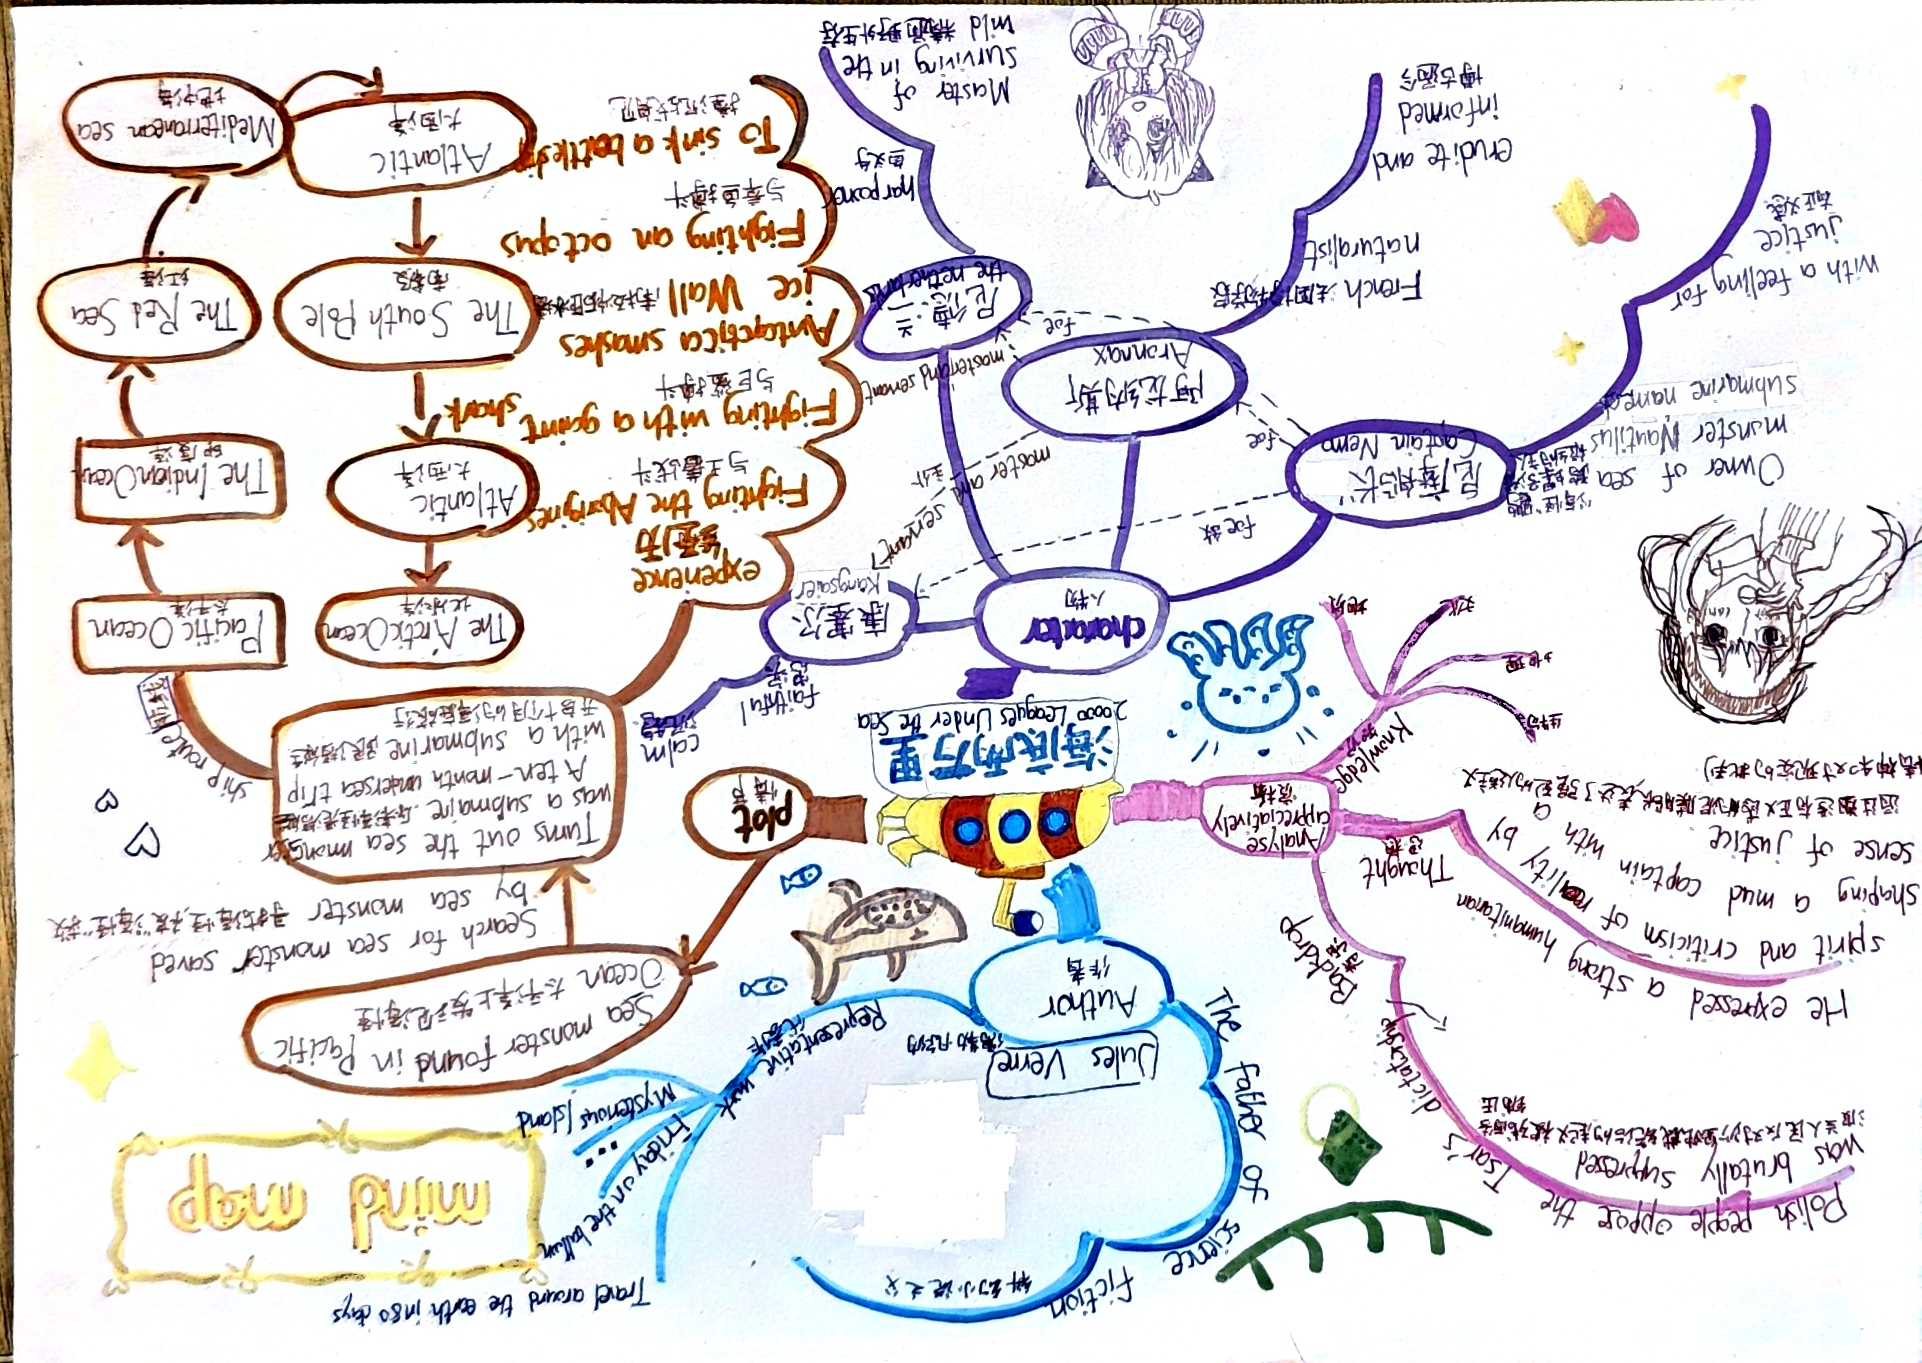 mind map
海底两万里
20000 Leagues Under the Sea
Author
作者
Jules Verne
儒勒·凡尔纳
The father of science fiction
科幻小说之父
Representative work
代表作
Travel around the earth in 80 days
Friday on the balloon
...
Mysterious Island
plot
情节
Sea monster found in Pacific
Ocean 太平洋上发现海怪
Search for sea monster saved
by sea monster 寻找海怪,被"海怪"救
Turns out the sea monster
was a submaire
A ten-month undersea trip
with a submarine
开启十个月的海底旅行
ship route
航线
Pacific Ocean
太平洋
The Indian Ocean
印度洋
The Red Sea
红海
Mediterranean sea
地中海
Atlantic
大西洋
The South Pole
南极
Atlantic
大西洋
The Arctic Ocean
北冰洋
experience
经历
Fighting the Aborigines
与土著战斗
Fighting with a gaint shark
与巨鲨搏斗
Antarctica smashes
ice Wall
Fighting an octopus
与章鱼搏斗
To sink a battleship
撞沉战舰
character
人物
康塞尔
Kangsaier
faithful
忠实
calm
沉着
尼摩船长
Captain Nemo
Owner of sea
monster Nautilus
submarine named
with a feeling for
justice
有正义感
阿龙纳斯
Aronnax
French 法国博物学家
naturalist
erudite and
informed
博古通今
尼德·兰
the netherlands
harpooner
鱼叉手
Master of
surviving in the
wild 精通野外生存
foe 敌
foe
foe
master and servant
主仆
master and servant
Analyse
appreciatively
赏析
Backdrop
背景
Polish people oppose the Tsar's dictatorship
was brutally suppressed
波兰人民反对沙皇独裁统治的起义被残酷
镇压
Thought
思想
He expressed a strong humanitarian
spirit and criticism of reality by
shaping a mud captain with a
sense of justice
通过塑造有正义感的泥膜船长,表达了强烈的人道主义
精神和对现实的批判
Knowledge
知识
生物
地理
文化
地质